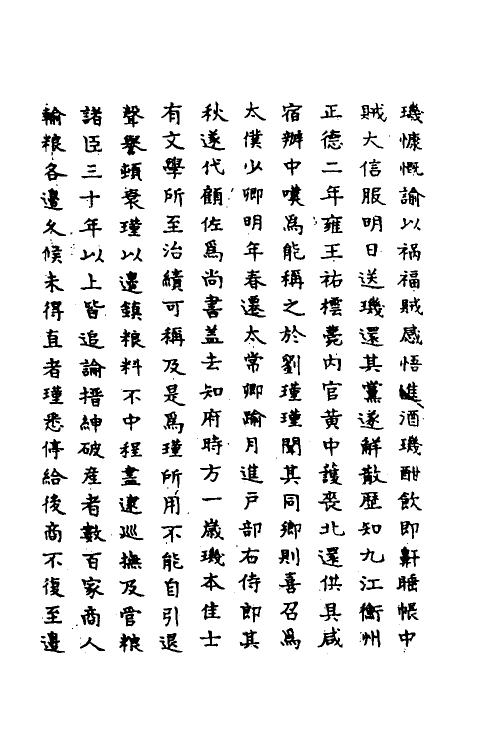 璣慷慨諭以禍福賊感悟進酒璣酣飲即鼾睡帳中
賊大信服明日送璣還其黨遂解散歷知九江衡州
正德二年雍王祐橒薨內官黃中護喪北還供具咸
宿辦中嘆為能稱之於劉瑾瑾聞其同鄉則喜召為
太僕少卿明年春遷太常卿踰月進戶部右侍郎其
秋遂代顧佐為尚書蓋去知府時方一歲璣本佳士
有文學所至治績可稱及是為瑾所用不能自引退
聲譽頓衰瑾以邊鎮粮料不中程盡逮巡撫及管粮
諸臣三十年以上皆追論搢紳破產者數百家商人
輸粮各邊久候未得直者瑾悉停給後商不復至邊